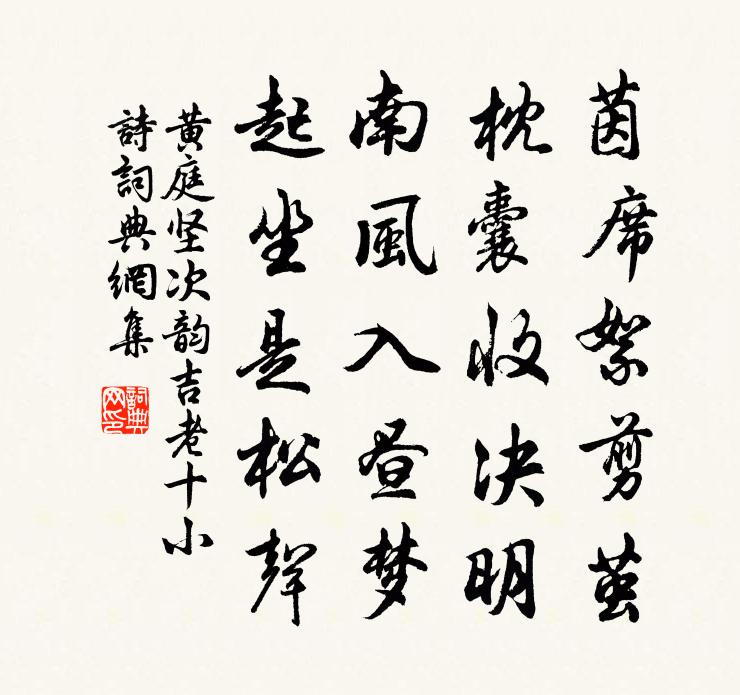 茵席絮剪茧
枕囊收决明
南風入昼梦
起坐是松聲
黄庭坚次韵吉老十小
詩詞典網集
詞典网印